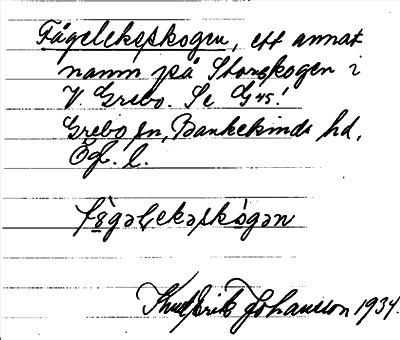 Fågelekeskogen, ett annat
namn på Storskogen i
V. Grebo. Se G45!
Grebo sn, Bankekinds hd,
Ög. l.
fə̀gəlekəskò̱gən
Johansson 1934.